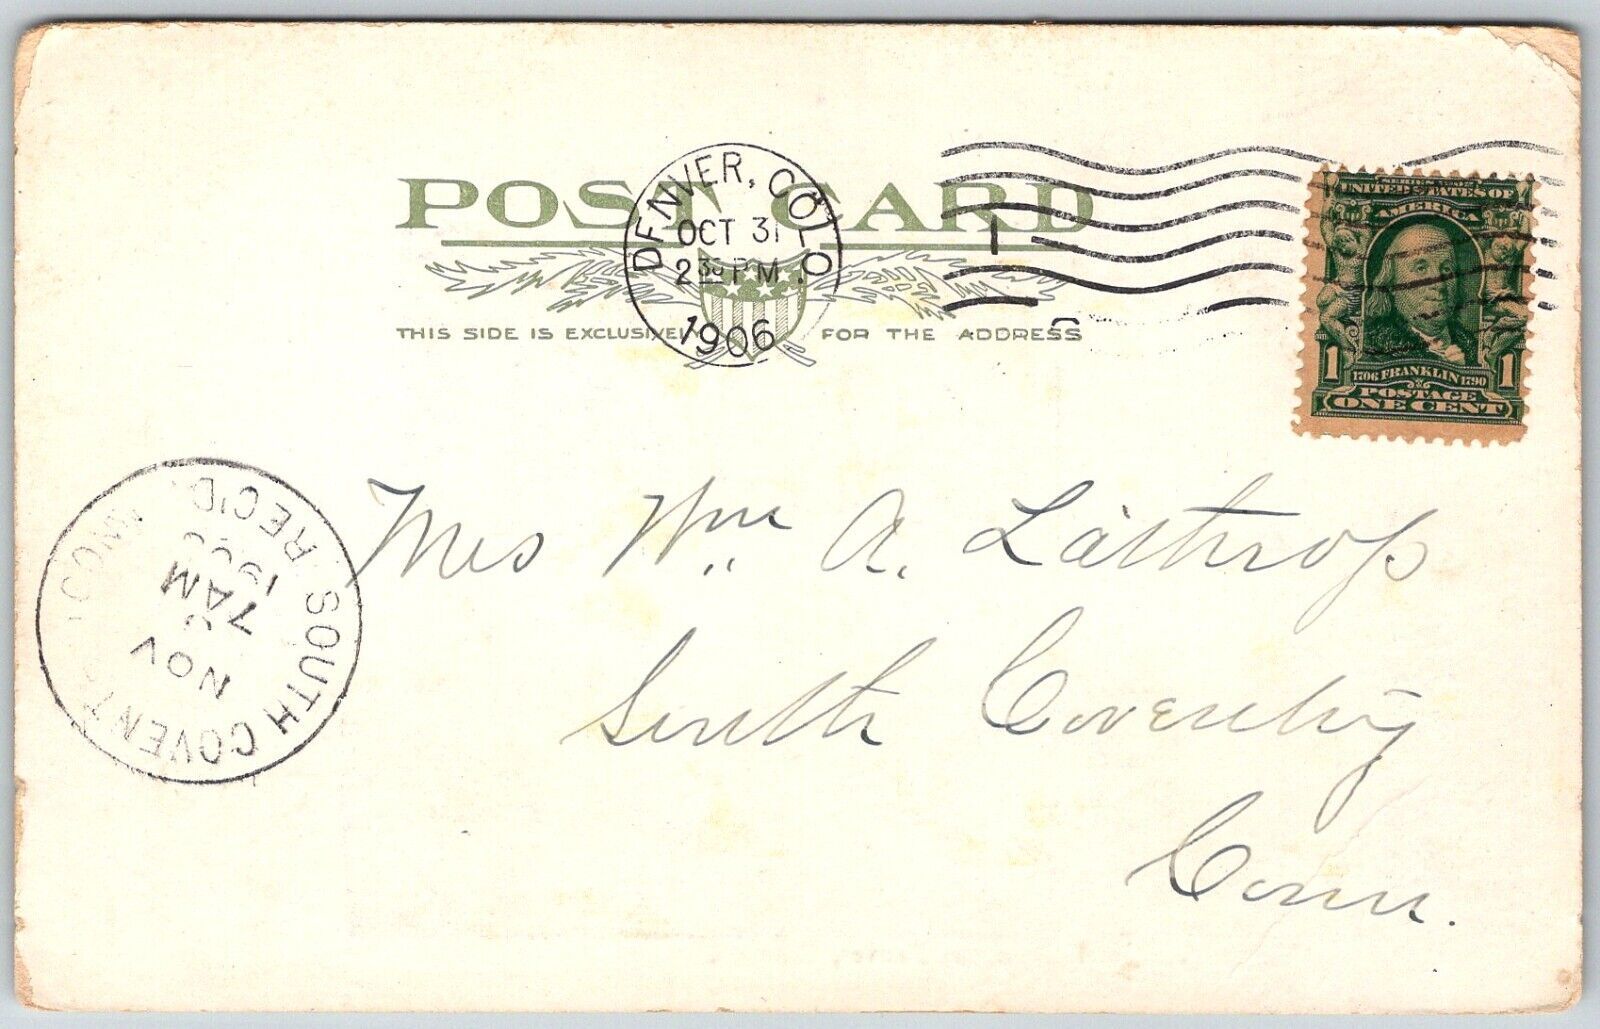 POST CARD
THIS SIDE IS EXCLUSIVELY FOR THE ADDRESS
DENVER, COLO
OCT 31
2 30 P.M.
1906
1
SERIES 1902
UNITED STATES OF
AMERICA
1706 FRANKLIN 1790
1 1
POSTAGE
ONE CENT
Mrs Wm. A. Lathrop
South Coventry
Conn.
SOUTH COVENT CONN.
REC'D.
NOV
7 AM
1906